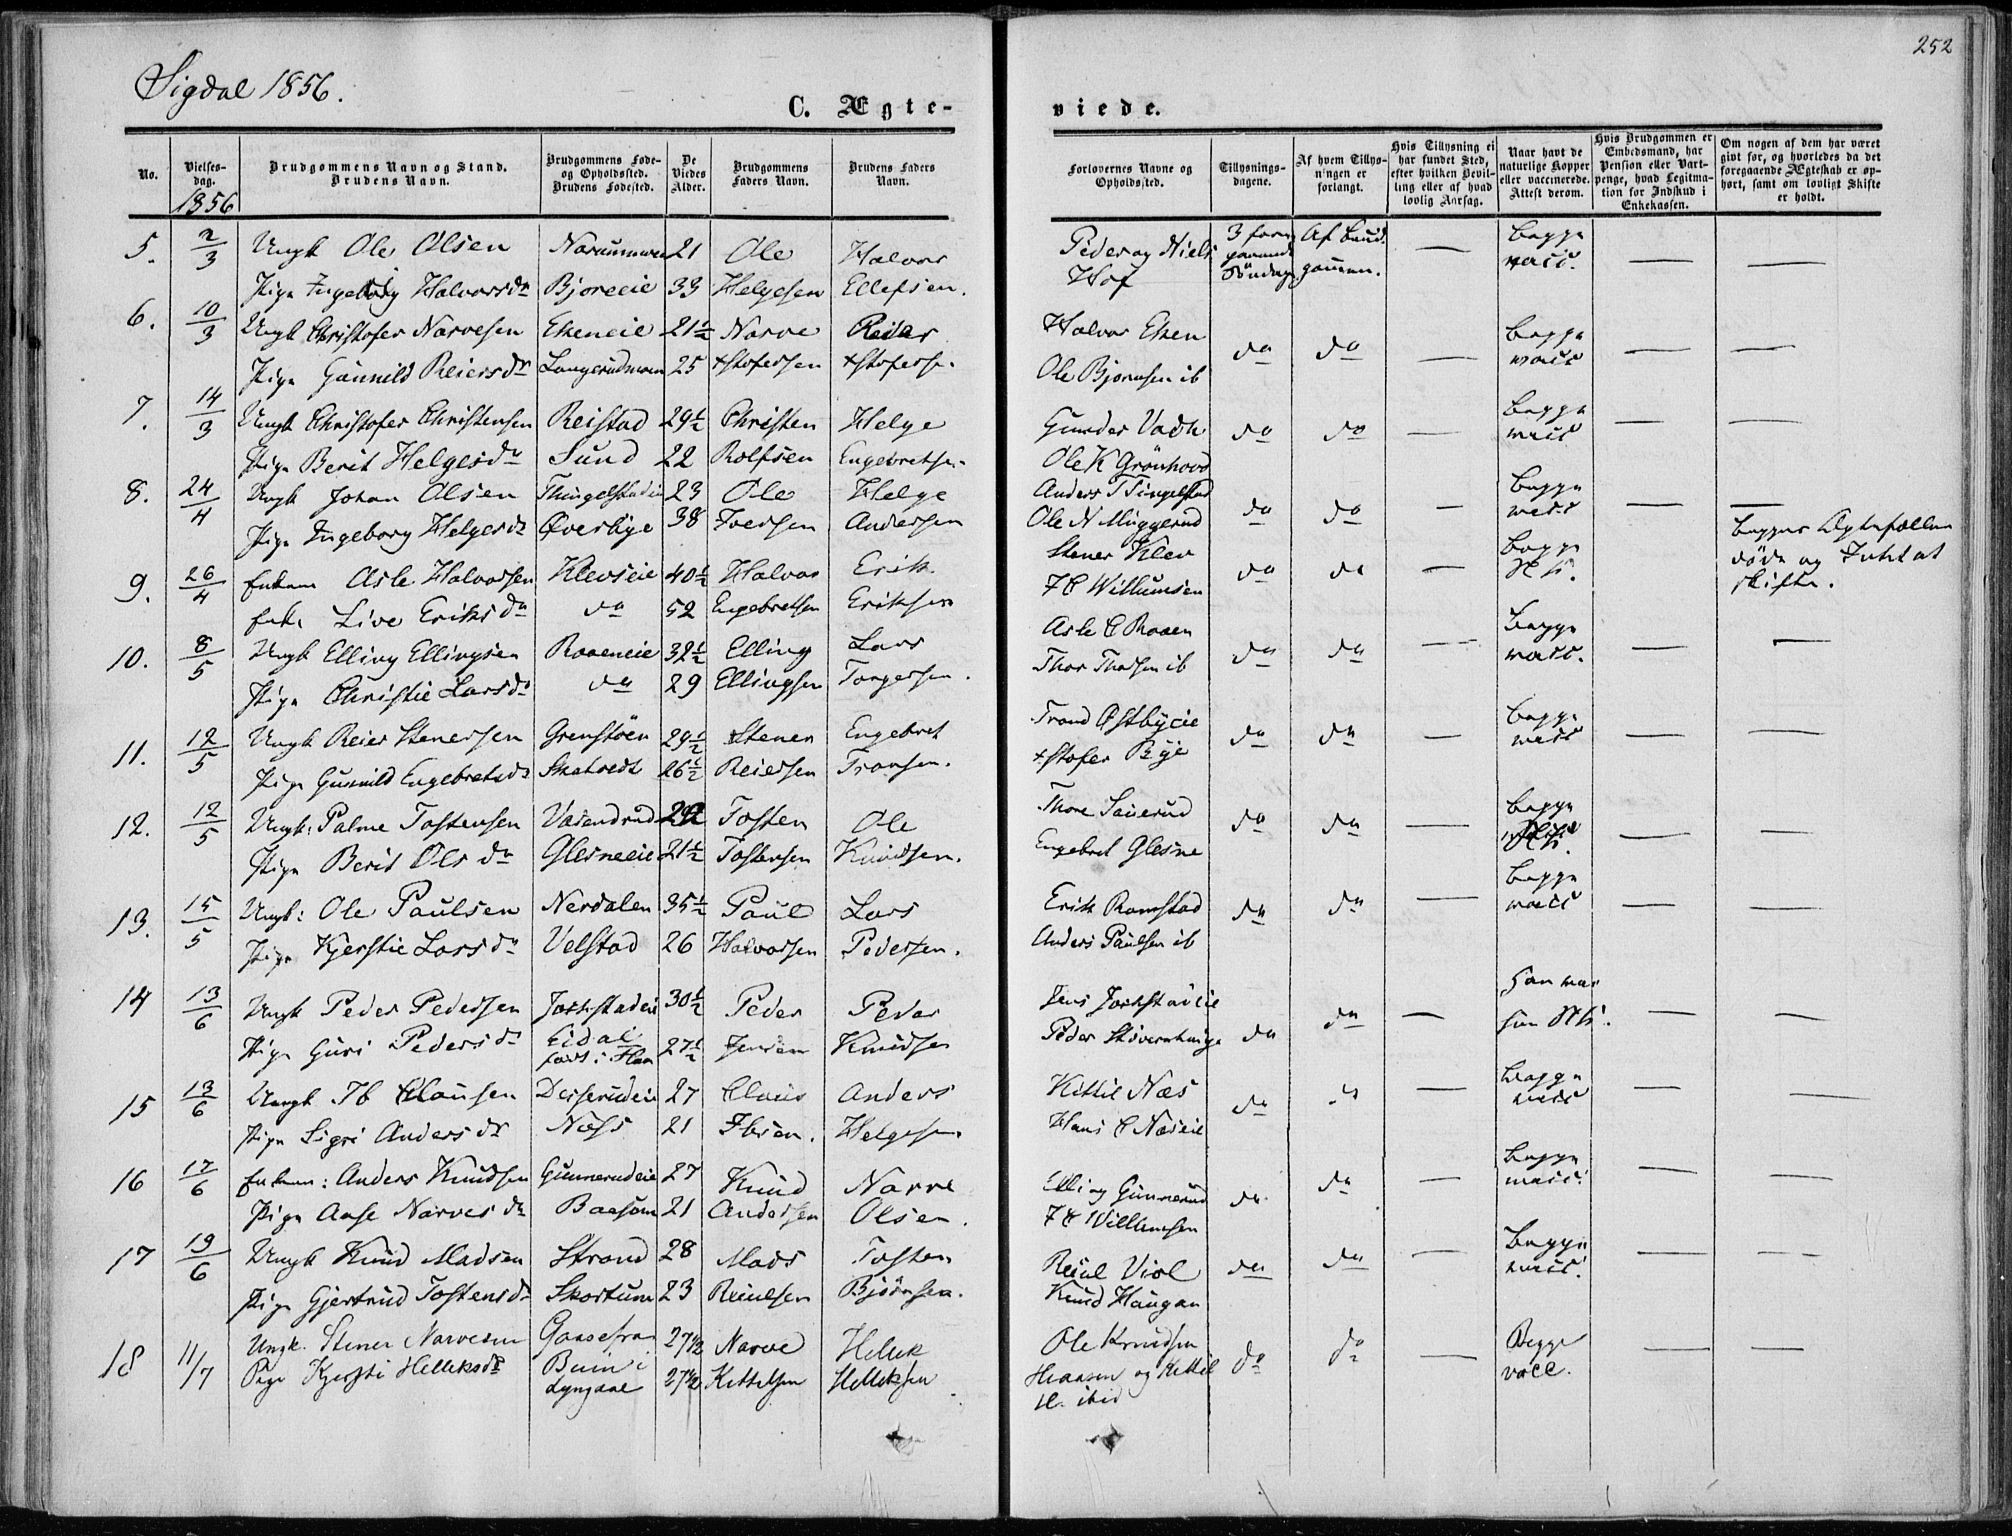 252
Sigdal 1856.
C. Ægte-
viede.
No.
Vielses-
dag.
Brudgommens Navn og Stand.
Brudens Navn.
Brudgommens Føde-
og Opholdssted.
Brudens Fødested.
De
Viedes
Alder.
Brudgommens
Faders Navn.
Brudens Faders
Navn.
Forlovernes Navne og
Opholdssted.
Tillysnings-
dagene.
Af hvem Tillys-
ningen er
forlangt.
Hvis Tillysning ei
har fundet Sted,
efter hvilken Bevil-
ling eller af hvad
lovlig Aarsag.
Naar havt de
naturlige Kopper
eller vaccinerede.
Attest derom.
Hvis Brudgommen er
Embedsmand, har
Pension eller Vart-
penge, hvad Legitima-
tion for Indskud i
Enkekassen.
Om nogen af dem har været
givt før, og hvorledes da det
foregaaende Ægteskab er op-
hørt, samt om lovligt Skifte
er holdt.
1856
5. 2/3 Ungk Ole Olsen 21 Ole Halvor Peder og Niels Begge
Pige Ingeborg Halvorsdr Bjøreeie 33 Helgesen Ellefsen. Hof vacc.
6. 10/3 Ungk Christofer Narvesen Ekeneie 21½ Narve Reier Halvor Eken do do Begge
Pige Gunnild Reiersdr 25 +stofersen +stofersen Ole Bjornsen ib vacc
7. 14/3 Ungk Christofer Christensen Reistad 29½ Christen Helge Gunder do do Begge
Pige Berit Helgesdr Sund 22 Rolfsen Engebretsen Ole K Grønhovd vacc
8. 24/4 Ungk Johan Olsen 23 Ole Helge Anders T Tingelstad do do Begge
Pige Ingeborg Helgesdr Øverbye 38 Iversen Andersen Ole N Muggerud vacc
9. 26/4 Enkem Asle Halvorsen Klevseie 40½ Halvor Erik Stener Klev do do Begge
Enke Live Eriksdr do 52 Engebretsen Eriksen Willumsen
Begges Ægtefæller
døde og Intet at
skifte.
10. 8/5 Ungk Elling Ellingsen Roaeneie 32½ Elling Lars do do Begge
Pige Christie Larsdr do 29 Ellingsen Torgersen. Thor Thorsen ib vacc.
11. 12/5 Ungk Reier Stenersen Grenstøen 29½ Stener Engebret Trond Østbyeie do do Begge
Pige Gunnild Engebretsdr Skatvedt 26½ Reiersen Tronsen. +stofer Bye vacc
12. 12/5 Ungk: Palme Tostensen Tosten Ole Thore do do Begge
Pige Berit Olsdr Glesneeie 21½ Tostensen Knudsen. Engebret Glesne
13. 15/5 Ungk: Ole Paulsen Nerdalen 35½ Paul Lars Erik Ramstad do do Begge
Pige Kjerstie Larsdr Velstad 26 Halvorsen Pedersen. Anders Paulsen ib vacc
14 13/6 Ungk Peder Pedersen 30½ Peder Peder Jens do do
Pige Guri Pedersdr Eidal 27½ Jensen Knudsen Peder
15 13/6 Ungk Ib Clausen 27 Claus Anders Kittil Næs do do Begge
Pige Sigri Andersdr Næss 21 Ibsen. Helgesen Hans C Næseie vacc
16 17/6 Enkem: Anders Knudsen Gunnerudeie 27 Knud Narve Elling Gunnerud do do Begge
Pige Anse Narvesdr Baasum 21 Andersen Olsen. Willumsen vacc.
17 19/6 Ungk Knud Madsen Strand 28 Mads Tosten Reiul Viol do do Begge
Pige Gjertrud Tostensdr Skartum 23 Reiulsen Bjørnsen. Knud Haugan vacc.
18 11/7 Ungk. Stener Narvesen 27½ Narve Hellek Ole Knudsen do do Begge
Pige Kjersti Helleksdr 27½ Kittelsen Helleksen og Kittil vacc.
H. ibid